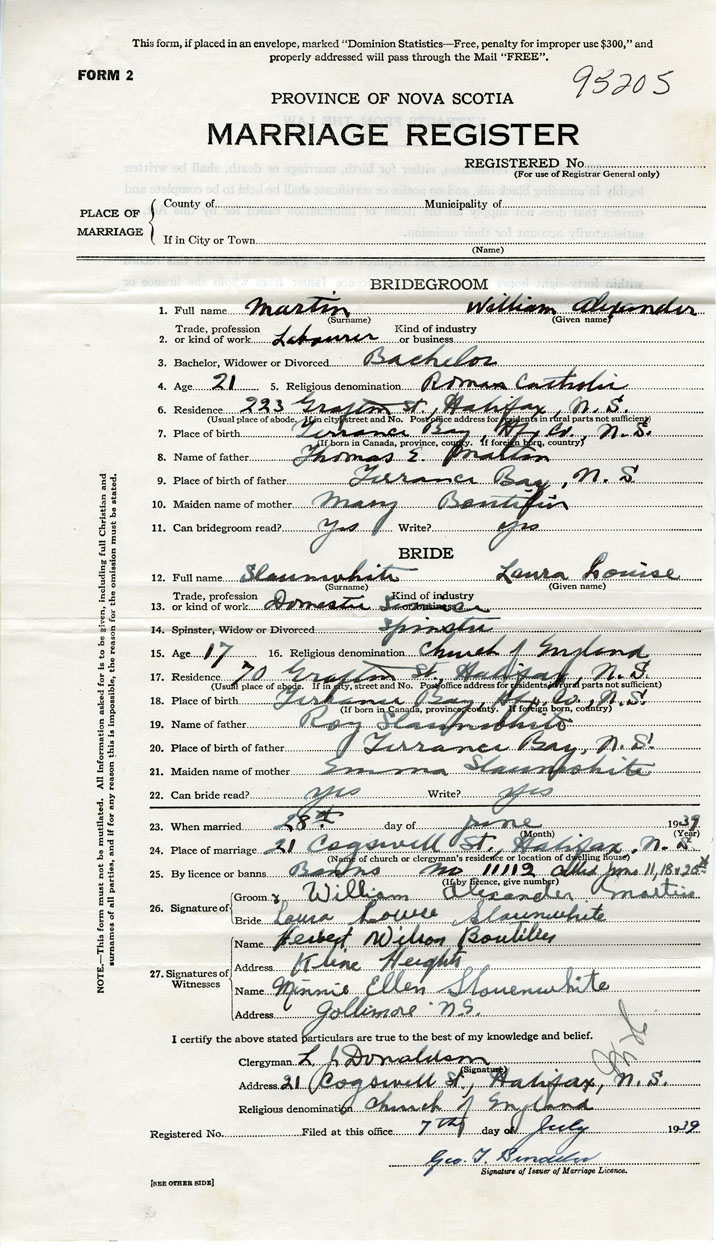 This form, if placed in an envelope, marked "Dominion Statistics—Free, penalty for improper use $300," and
properly addressed will pass through the Mail "FREE".
FORM 2
95205
PROVINCE OF NOVA SCOTIA
MARRIAGE REGISTER
REGISTERED No.
(For use of Registrar General only)
PLACE OF MARRIAGE
County of Municipality of
If in City or Town
(Name)
BRIDEGROOM
1. Full name Martin William Alexander
(Surname) (Given name)
2. Trade, profession or kind of work Labourer Kind of industry or business
3. Bachelor, Widower or Divorced Bachelor
4. Age 21 5. Religious denomination Roman Catholic
6. Residence 223 Grafton St., Halifax, N.S.
(Usual place of abode. If in city, street and No. Post office address for residents in rural parts not sufficient)
7. Place of birth Terrance Bay, Hfx. Co., N.S.
(If born in Canada, province, county. If foreign born, country)
8. Name of father Thomas E. Martin
9. Place of birth of father Terrance Bay, N.S.
10. Maiden name of mother Mary
11. Can bridegroom read? Yes Write? Yes
BRIDE
12. Full name Slaunwhite Laura Louise
(Surname) (Given name)
13. Trade, profession or kind of work Domestic Kind of industry or business
14. Spinster, Widow or Divorced Spinster
15. Age 17 16. Religious denomination Church of England
17. Residence 70 Grafton St., Halifax, N.S.
(Usual place of abode. If in city, street and No. Post office address for residents in rural parts not sufficient)
18. Place of birth Terrance Bay, Hfx. Co., N.S.
(If born in Canada, province, county. If foreign born, country)
19. Name of father Roy Slaunwhite
20. Place of birth of father Terrance Bay, N.S.
21. Maiden name of mother Emma Slaunwhite
22. Can bride read? yes Write? yes
23. When married 28th day of June 1939
(Month) (Year)
24. Place of marriage 21 Cogswell St., Halifax, N.S.
(Name of church or clergyman's residence or location of dwelling house)
25. By licence or banns Banns No 11112 June 11, 18 & 25th
(If by licence, give number)
26. Signature of
Groom William Alexander Martin
Bride Laura Louise Slaunwhite
27. Signatures of Witnesses
Name Wilson Boutilier
Address Kline Heights
Name Minnie Ellen Slauenwhite
Address Jollimore N.S.
I certify the above stated particulars are true to the best of my knowledge and belief.
Clergyman L. J. Donaldson
(Signature)
Address 21 Cogswell St., Halifax, N.S.
Religious denomination Church of England
Registered No. Filed at this office 7th day of July 1939
Geo. T.
Signature of Issuer of Marriage Licence.
[SEE OTHER SIDE]
NOTE.—This form must not be mutilated. All information asked for is to be given, including full Christian and
surnames of all parties, and if for any reason this is impossible, the reason for the omission must be stated.